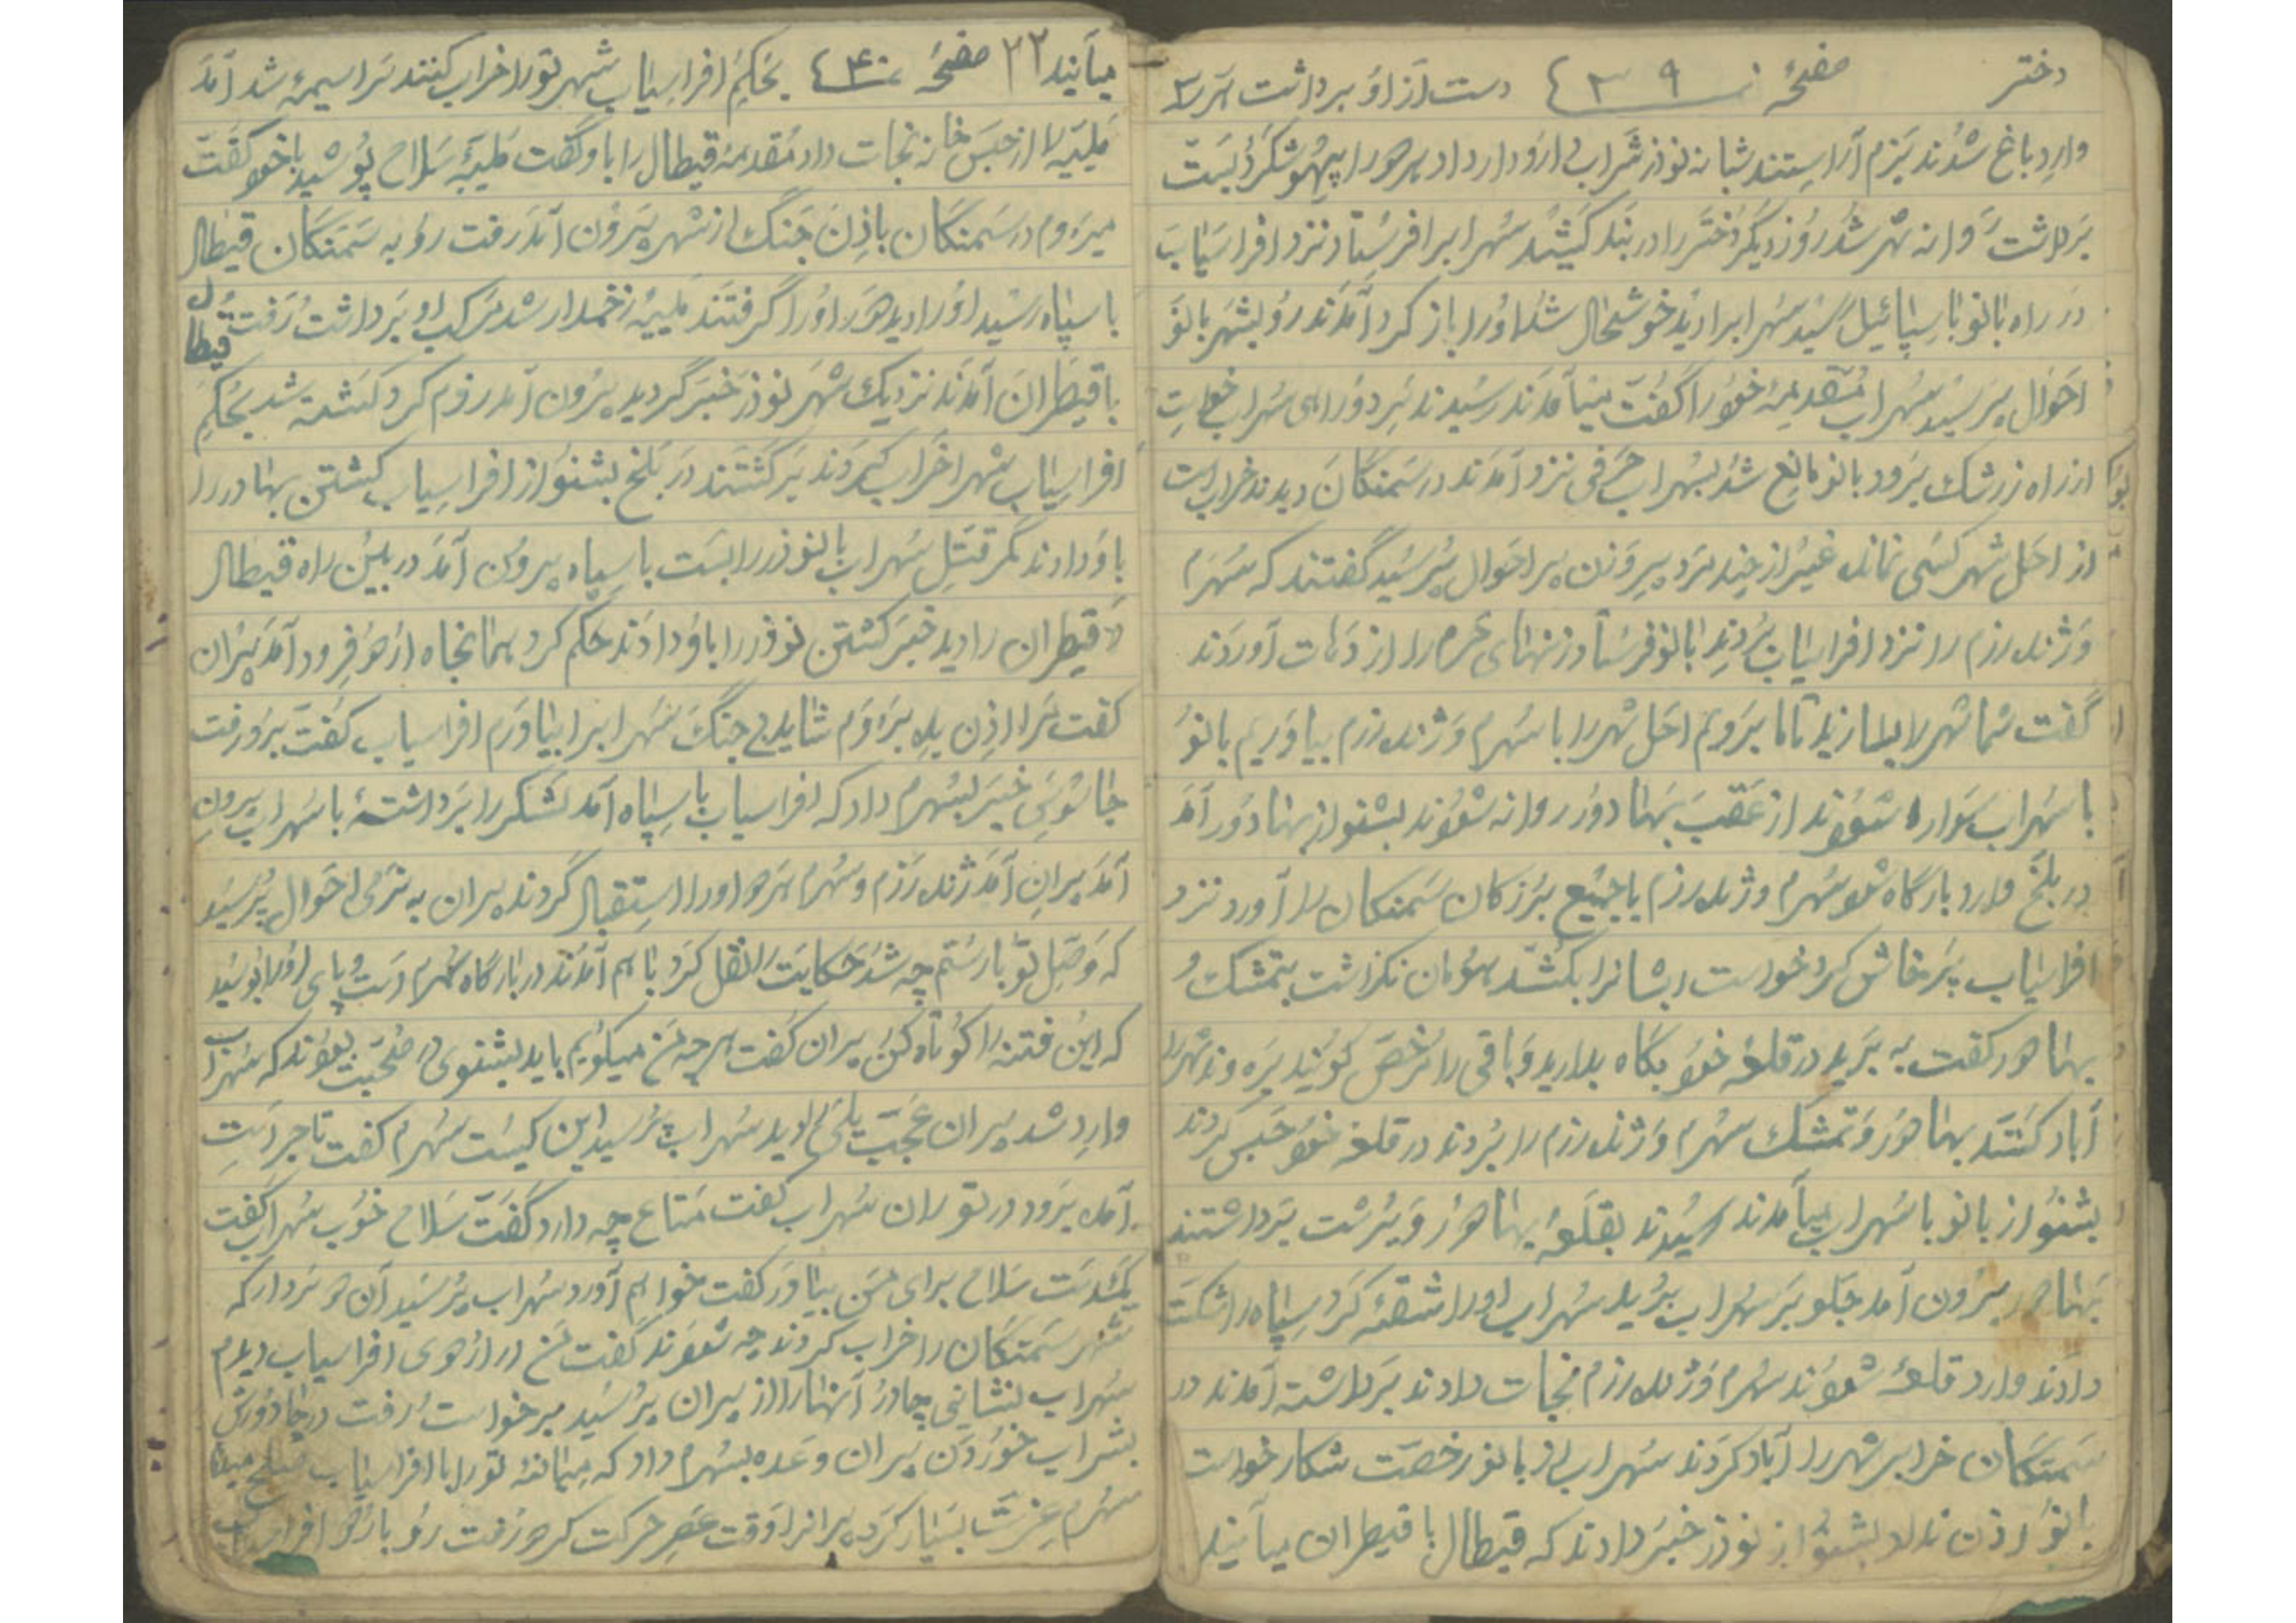 دختر صفحهٔ ۳۹ دست از او برداشت
وارد باغ شدند بزم آراستند شبانه نوذر شراب داد هر دو را بیهوش کرد بست
برداشت روانه شهر شد روز دیگر دختر را در بند کشید سهراب را فرستاد نزد افراسیاب
در راه بانو با سپاه رسید سهراب را دید خوشحال شد او را باز کرد آمدند رو بشهر بانو
احوال پرسید سهراب مقدمهٔ خود را گفت میآمدند رسیدند بر دو راهی سهراب خواست
از راه زرشک برود بانو مانع شد بسهراب حرفی نزد آمدند در سمنگان دیدند خراب است
از احل شهر کسی نمانده غیر از چند مرد پیر و زن پیر احوال پرسید گفتند که سهرم
و ژنده رزم را نزد افراسیاب بردند بانو فرستاد زنهای محرم را از دهات آوردند
گفت شما شهر را بسازید تا ما برویم احل شهر را با سهرم و ژنده رزم بیاوریم بانو
با سهراب سواره شدند از عقب بهادور روانه شدند بشنو از بهادور آمد
در بلخ وارد بارگاه شد سهرم و ژنده رزم با جمیع بزرگان سمنگان را آورد نزد
افراسیاب پرخاش کرد خواست ایشانرا بکشد هومان نگذاشت بتمشک و
بهاهور گفت به برید در قلعه خود نگاه بدارید و باقی را مرخص کنید بروند شهر را
آباد کنند بهاهور و تمشک سهرم و ژنده رزم را بردند در قلعه خود حبس کردند
بشنو از بانو با سهراب میآمدند رسیدند بقلعهٔ بهاهور یورش برداشتند
بهاهور بیرون آمد جلو بر سهراب برید سهراب او را شقه کرد سپاه را شکست
دادند وارد قلعه شدند سهرم و ژنده رزم نجات دادند برداشته آمدند در
سمنگان خرابی شهر را آباد کردند سهراب از بانو رخصت شکار خواست
بانو اذن نداد بشنو از نوذر خبر دادند که قیطال با قیطران میآیند
میآیند ۲۲ صفحهٔ ۴۰ بحکم افراسیاب شهر تو را خراب کنند سراسیمه شد آمد
ملیه را از حبس خانه نجات داد مقدمهٔ قیطال را باو گفت ملیه سلاح پوشید با خود گفت
میروم در سمنگان باذن جنگ از شهر بیرون آمد رفت رو به سمنگان قیطال
با سپاه رسید او را دید دور او را گرفتند ملیه زخمدار شد مرکب او برداشت رفت قیطال
با قیطران آمدند نزدیک شهر نوذر خبر گردید بیرون آمد رزم کرد کشته شد بحکم
افراسیاب شهر را خراب کردند برگشتند در بلخ بشنو از افراسیاب کشتن بهادور را
باو دادند کمر قتل سهراب بانوذر را بست با سپاه بیرون آمد در بین راه قیطال
و قیطران را دید خبر کشتن نوذر را باو دادند حکم کرد همانجاه اردو فرود آمد پیران
گفت مرا اذن بده بروم شاید بی جنگ سهراب را بیاورم افراسیاب گفت برو رفت
جاسوسی خبر بسهرم داد که افراسیاب با سپاه آمد لشکر را برداشته با سهراب بیرون
آمد پیران آمد ژنده رزم و سهرم هر دو او را استقبال کردند پیران به نرمی احوال پرسید
که وصل تو با رستم چه شد حکایت را نقل کرد با هم آمدند در بارگاه سهرم دست و پای او را بوسید
که این فتنه را کوتاه کن پیران گفت هر چه من میگویم باید بشنوی در صحبت بودند که سهراب
وارد شد پیران عجب یلی دید سهراب پرسید این کیست سهرم گفت تاجر است
آمده برود در توران سهراب گفت متاع چه دارد گفت سلاح خوب سهراب گفت
یکدست سلاح برای من بیاور گفت خواهم آورد سهراب پرسید آن دو سردار که
شهر سمنگان را خراب کردند چه شدند گفت من در اردوی افراسیاب دیدم
سهراب نشانی چادر آنها را از پیران پرسید برخواست رفت در چادرش
بشراب خوردن پیران وعده بسهرم داد که میانه تو را با افراسیاب صلح میدهم
سهرم عزت بسیار کرد پیرانرا وقت عصر حرکت کرد رفت رو باردو افراسیاب